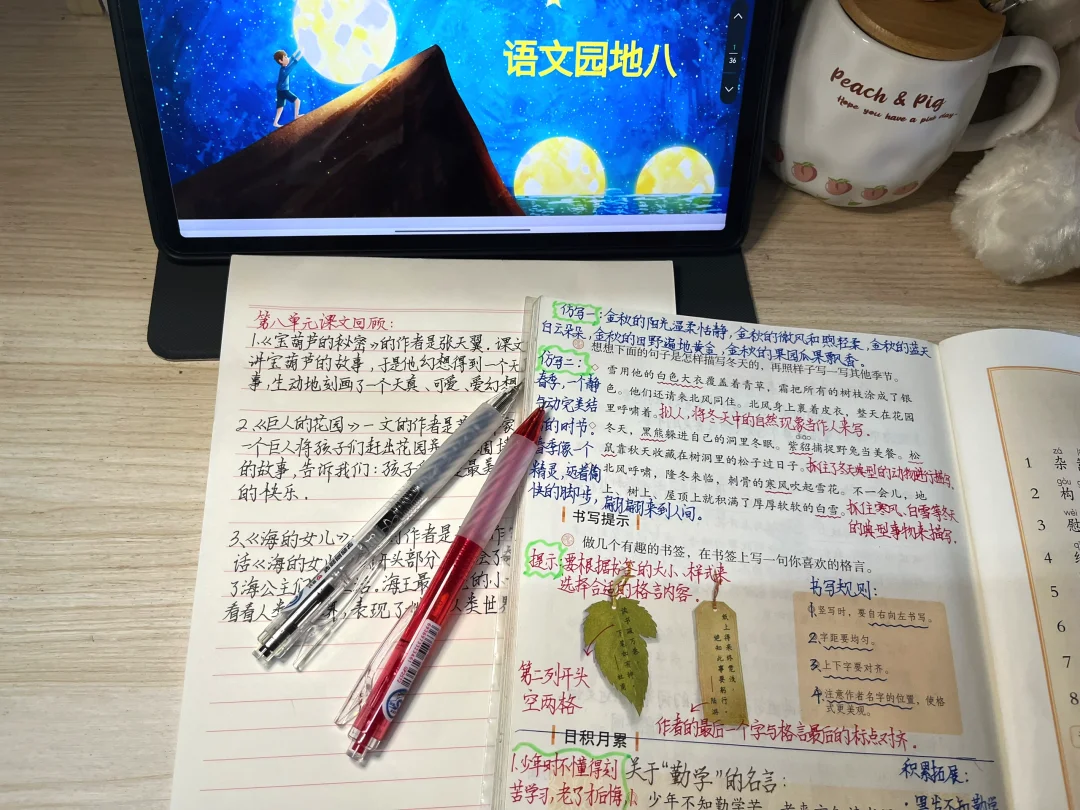 语文园地八
1
36
Peach & Pig
Hope you have a pink day~
第八单元课文回顾:
1.《宝葫芦的秘密》的作者是张天翼.课文
讲宝葫芦的故事,于是他幻想得到一个
事,生动地刻画了一个天真、可爱、爱幻想
2.《巨人的花园》一文的作者是
一个巨人将孩子们赶出花园
的故事,告诉我们:孩子
的快乐.
3.《海的女儿》
话《海的 开头部分
了海公主们 海王最 的小
看着人类 表现了 人类世界
仿写一:金秋的阳光温柔恬静,金秋的微风和煦轻柔,金秋的蓝天
白云朵朵,金秋的田野遍地黄金,金秋的果园瓜果飘香。
想想下面的句子是怎样描写冬天的,再照样子写一写其他季节。
仿写二:
春季,一个静
与动完美结
的时节。
春季像一个
精灵,迈着愉
快的脚步,翩翩来到人间。
◇ 雪用他的白色大衣覆盖着青草,霜把所有的树枝涂成了银
色。他们还请来北风同住。北风身上裹着皮衣,整天在花园
里呼啸着。拟人,将冬天中的自然现象当作人来写.
◇ 冬天,黑熊躲进自己的洞里冬眠。紫貂捕捉野兔当美餐。松
diāo
鼠靠秋天收藏在树洞里的松子过日子。抓住了冬天典型的动物进行描写.
◇ 北风呼啸,隆冬来临,刺骨的寒风吹起雪花。不一会儿,地
上、树上、屋顶上就积满了厚厚软软的白雪。抓住寒风、白雪等冬天
的典型事物来描写.
书写提示
做几个有趣的书签,在书签上写一句你喜欢的格言。
提示:要根据书签的大小、样式来
选择合适的格言内容.
书写规则:
1.竖写时,要自右向左书写。
2.字距要均匀。
3.上下字要对齐。
4.注意作者名字的位置,使格
式更美观。
纸上得来终觉浅,
绝知此事要躬行。
——陆游
第二列开头
空两格
作者的最后一个字与格言最后的标点对齐.
日积月累
1.少年时不懂得刻
苦学习,老了才后悔
关于“勤学”的名言:
积累拓展:
1
2
3
4
5
6
7
8
zá
杂
gòu
构
wèi
慰